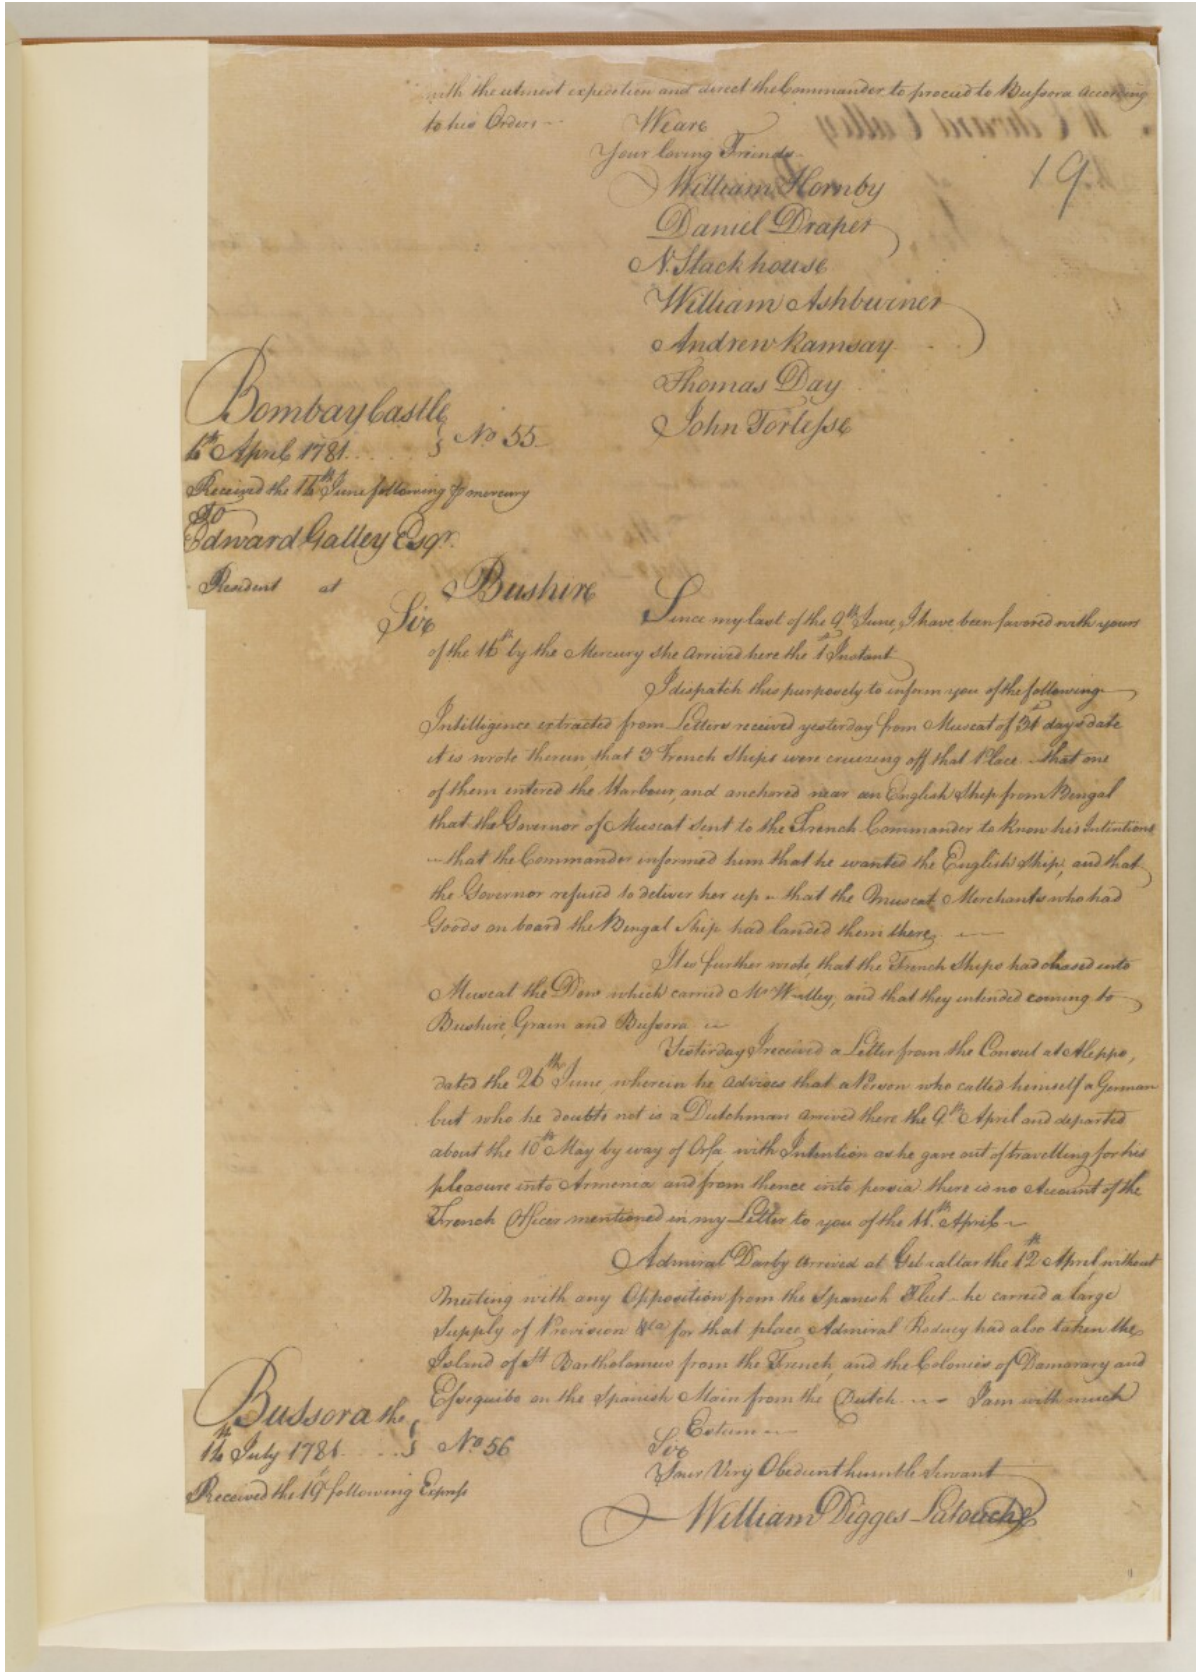 with the utmost expedition and direct the Commander to proceed to Bussora according
to his Orders
We are
Your loving Friends
19
William Hornby
Daniel Draper
N. Stackhouse
William Ashburner
Andrew Ramsay
Thomas Day
John Torlesse
Bombay Castle
April 1781
No 55
Received the June following mercury
To
Edward Galley Esqr.
Resident at
Bushire
Sir
Since my last of the 9th June, I have been favored with yours
of the 16th by the Mercury she arrived here the 1st Instant
I dispatch this purposely to inform you of the following
Intelligence extracted from Letters received yesterday from Muscat of days date
it is wrote therein that 3 French Ships were cruizing off that Place - that one
of them entered the Harbour, and anchored near an English Ship from Bengal
that the Governor of Muscat sent to the French Commander to know his Intentions
- that the Commander informed him that he wanted the English Ship, and that
the Governor refused to deliver her up - that the Muscat Merchants who had
Goods on board the Bengal Ship had landed them there,
It is further wrote, that the French Ships had chased into
Muscat the Dow which carried Mr and that they intended coming to
Bushire, Grain and Bussora
Yesterday I received a Letter from the Consul at Aleppo,
dated the 26th June, wherein he advises that a Person who called himself a German
but who he doubts not is a Dutchman arrived there the 9th April and departed
about the 10th May by way of Orfa with Intention as he gave out of travelling for his
pleasure into Armenia and from thence into persia there is no Account of the
French Officer mentioned in my Letter to you of the 11th April
Admiral Darby arrived at Gibraltar the 12th April without
meeting with any Opposition from the Spanish Fleet - he carried a large
Supply of Provision &ca for that place Admiral Rodney had also taken the
Island of St Bartholomew from the French, and the Colonies of Damarary and
Essequibo on the Spanish Main from the Dutch I am with much
Esteem
Bussora the
July 1781
No 56
Sir
Received the 19th following Express
Your Very Obedient humble Servant
William Digges Latouche